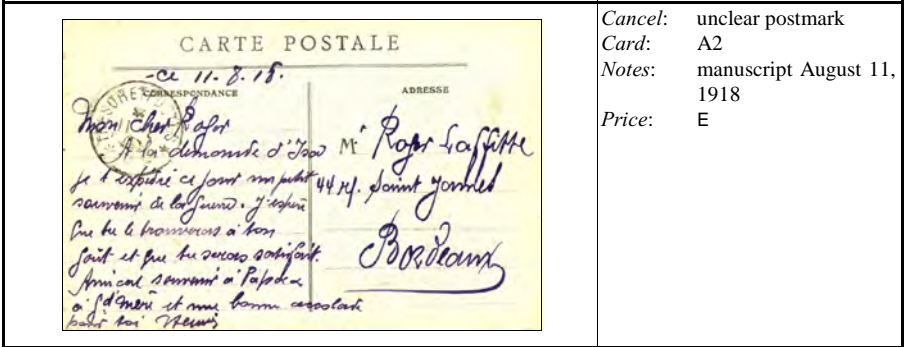 CARTE POSTALE
-ce 11.8.18.
CORRESPONDANCE
ADRESSE
Mon cher Roger
A la demande d'
je t'expédie ce jour un petit
souvenir de la guerre. J'espère
que tu le trouveras à ton
goût et que tu seras satisfait.
Amical souvenir à Papa
à Gd mère et une bonne accolade
pour toi
Mr Roger Laffitte
44 r. Saint James
Bordeaux
Cancel: unclear postmark
Card: A2
Notes: manuscript August 11,
1918
Price: E